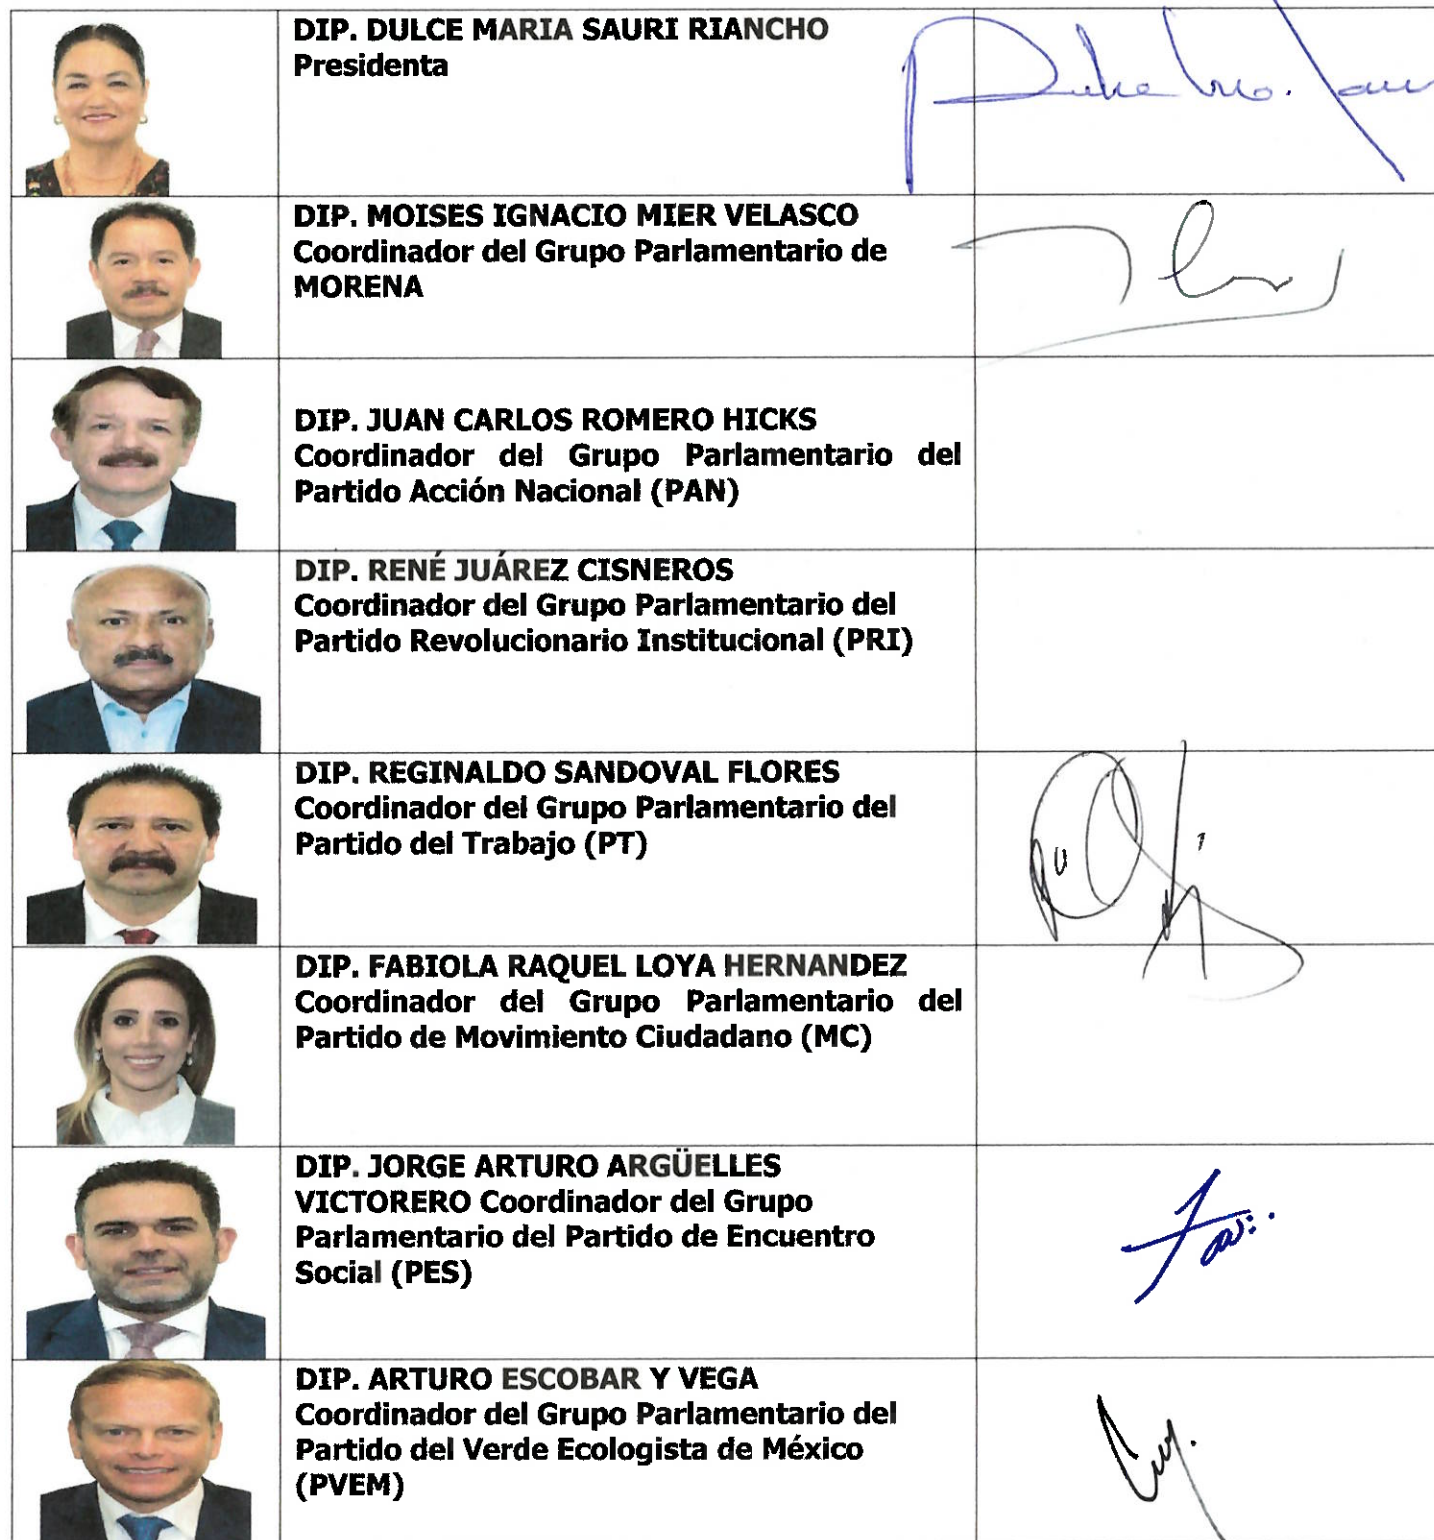 DIP. DULCE MARIA SAURI RIANCHO
Presidenta
DIP. MOISES IGNACIO MIER VELASCO
Coordinador del Grupo Parlamentario de
MORENA
DIP. JUAN CARLOS ROMERO HICKS
Coordinador del Grupo Parlamentario del
Partido Acción Nacional (PAN)
DIP. RENÉ JUÁREZ CISNEROS
Coordinador del Grupo Parlamentario del
Partido Revolucionario Institucional (PRI)
DIP. REGINALDO SANDOVAL FLORES
Coordinador del Grupo Parlamentario del
Partido del Trabajo (PT)
DIP. FABIOLA RAQUEL LOYA HERNANDEZ
Coordinador del Grupo Parlamentario del
Partido de Movimiento Ciudadano (MC)
DIP. JORGE ARTURO ARGÜELLES
VICTORERO Coordinador del Grupo
Parlamentario del Partido de Encuentro
Social (PES)
DIP. ARTURO ESCOBAR Y VEGA
Coordinador del Grupo Parlamentario del
Partido del Verde Ecologista de México
(PVEM)